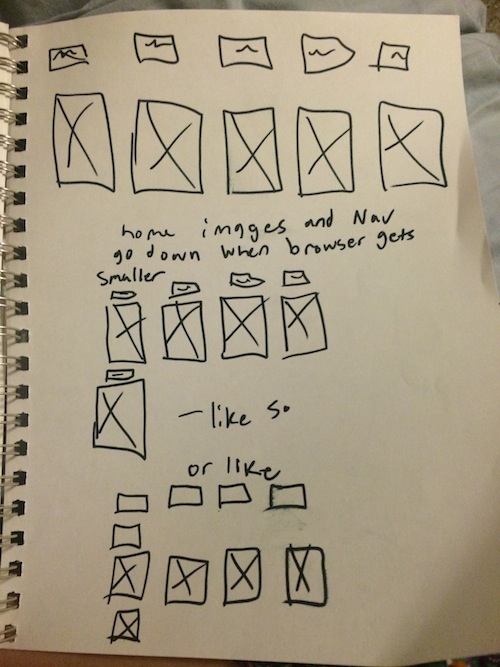 home images and Nav
go down when browser gets
smaller
- like so
or like